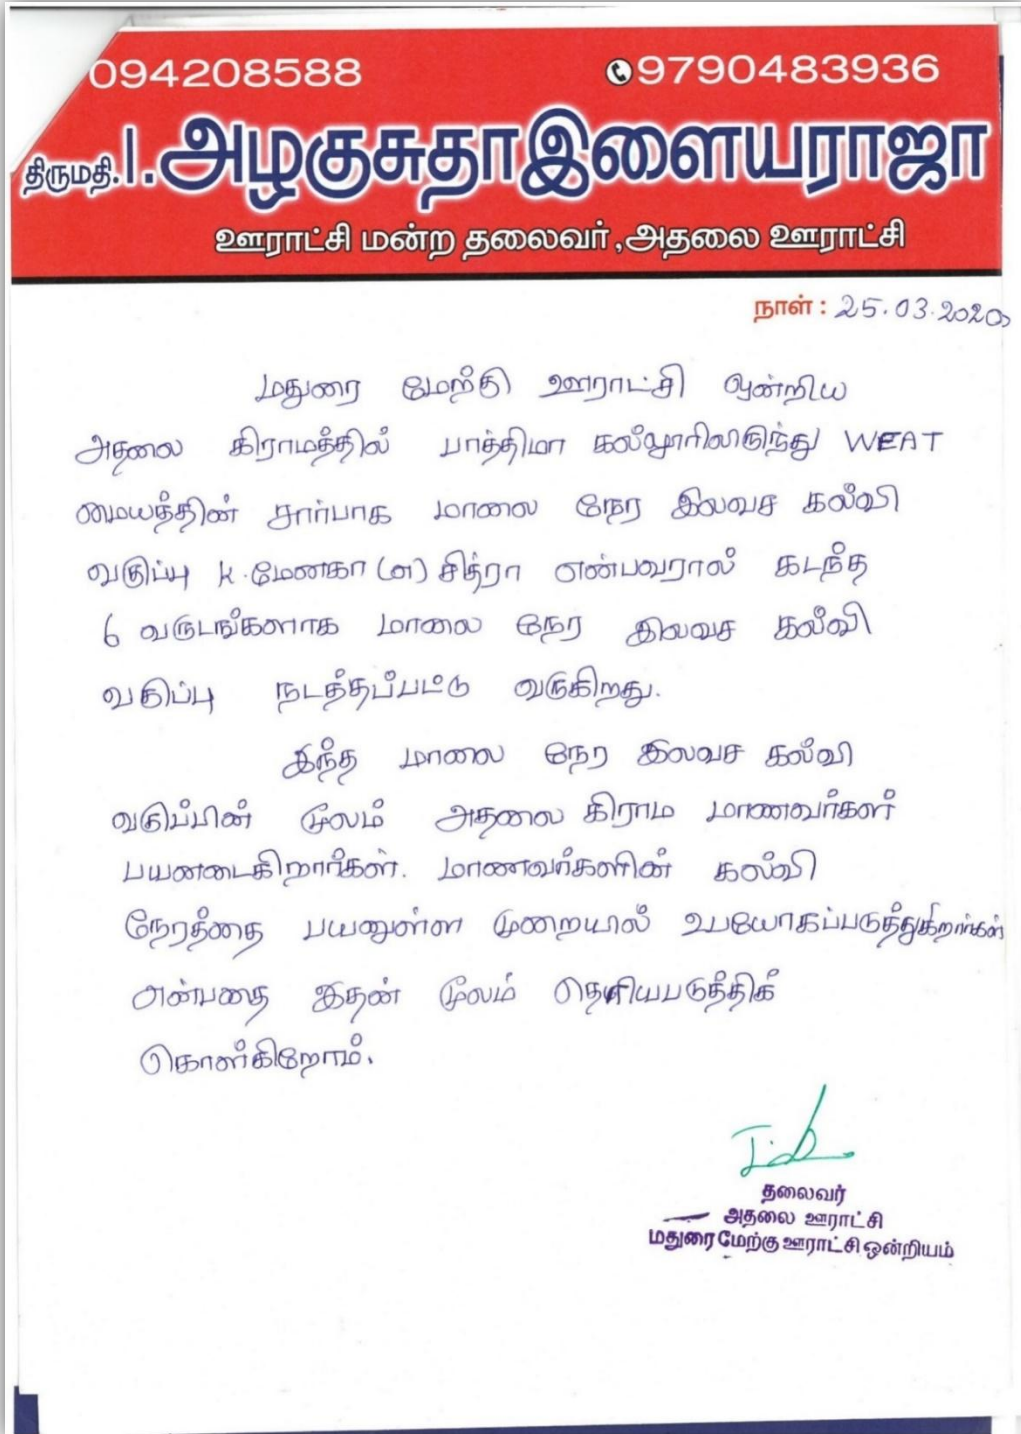 094208588 9790483936
திருமதி.I.அழகுசுதாஇளையராஜா
ஊராட்சி மன்ற தலைவர்,அதலை ஊராட்சி
நாள் : 25.03.2020
மதுரை மேற்கு ஊராட்சி ஒன்றிய
அதலை கிராமத்தில் பாத்திமா கல்லூரிலிருந்து WEAT
மையத்தின் சார்பாக மாலை நேர இலவச கல்வி
வகுப்பு K.மேனகா (எ) சித்ரா என்பவரால் கடந்த
6 வருடங்களாக மாலை நேர இலவச கல்வி
வகுப்பு நடத்தப்பட்டு வருகிறது.
இந்த மாலை நேர இலவச கல்வி
வகுப்பின் மூலம் அதலை கிராம மாணவர்கள்
பயனடைகிறார்கள். மாணவர்களின் கல்வி
நேரத்தை பயனுள்ள முறையில் உபயோகப்படுத்துகிறார்கள்
என்பதை இதன் மூலம் தெரியபடுத்திக்
கொள்கிறோம்.
தலைவர்
அதலை ஊராட்சி
மதுரை மேற்கு ஊராட்சி ஒன்றியம்